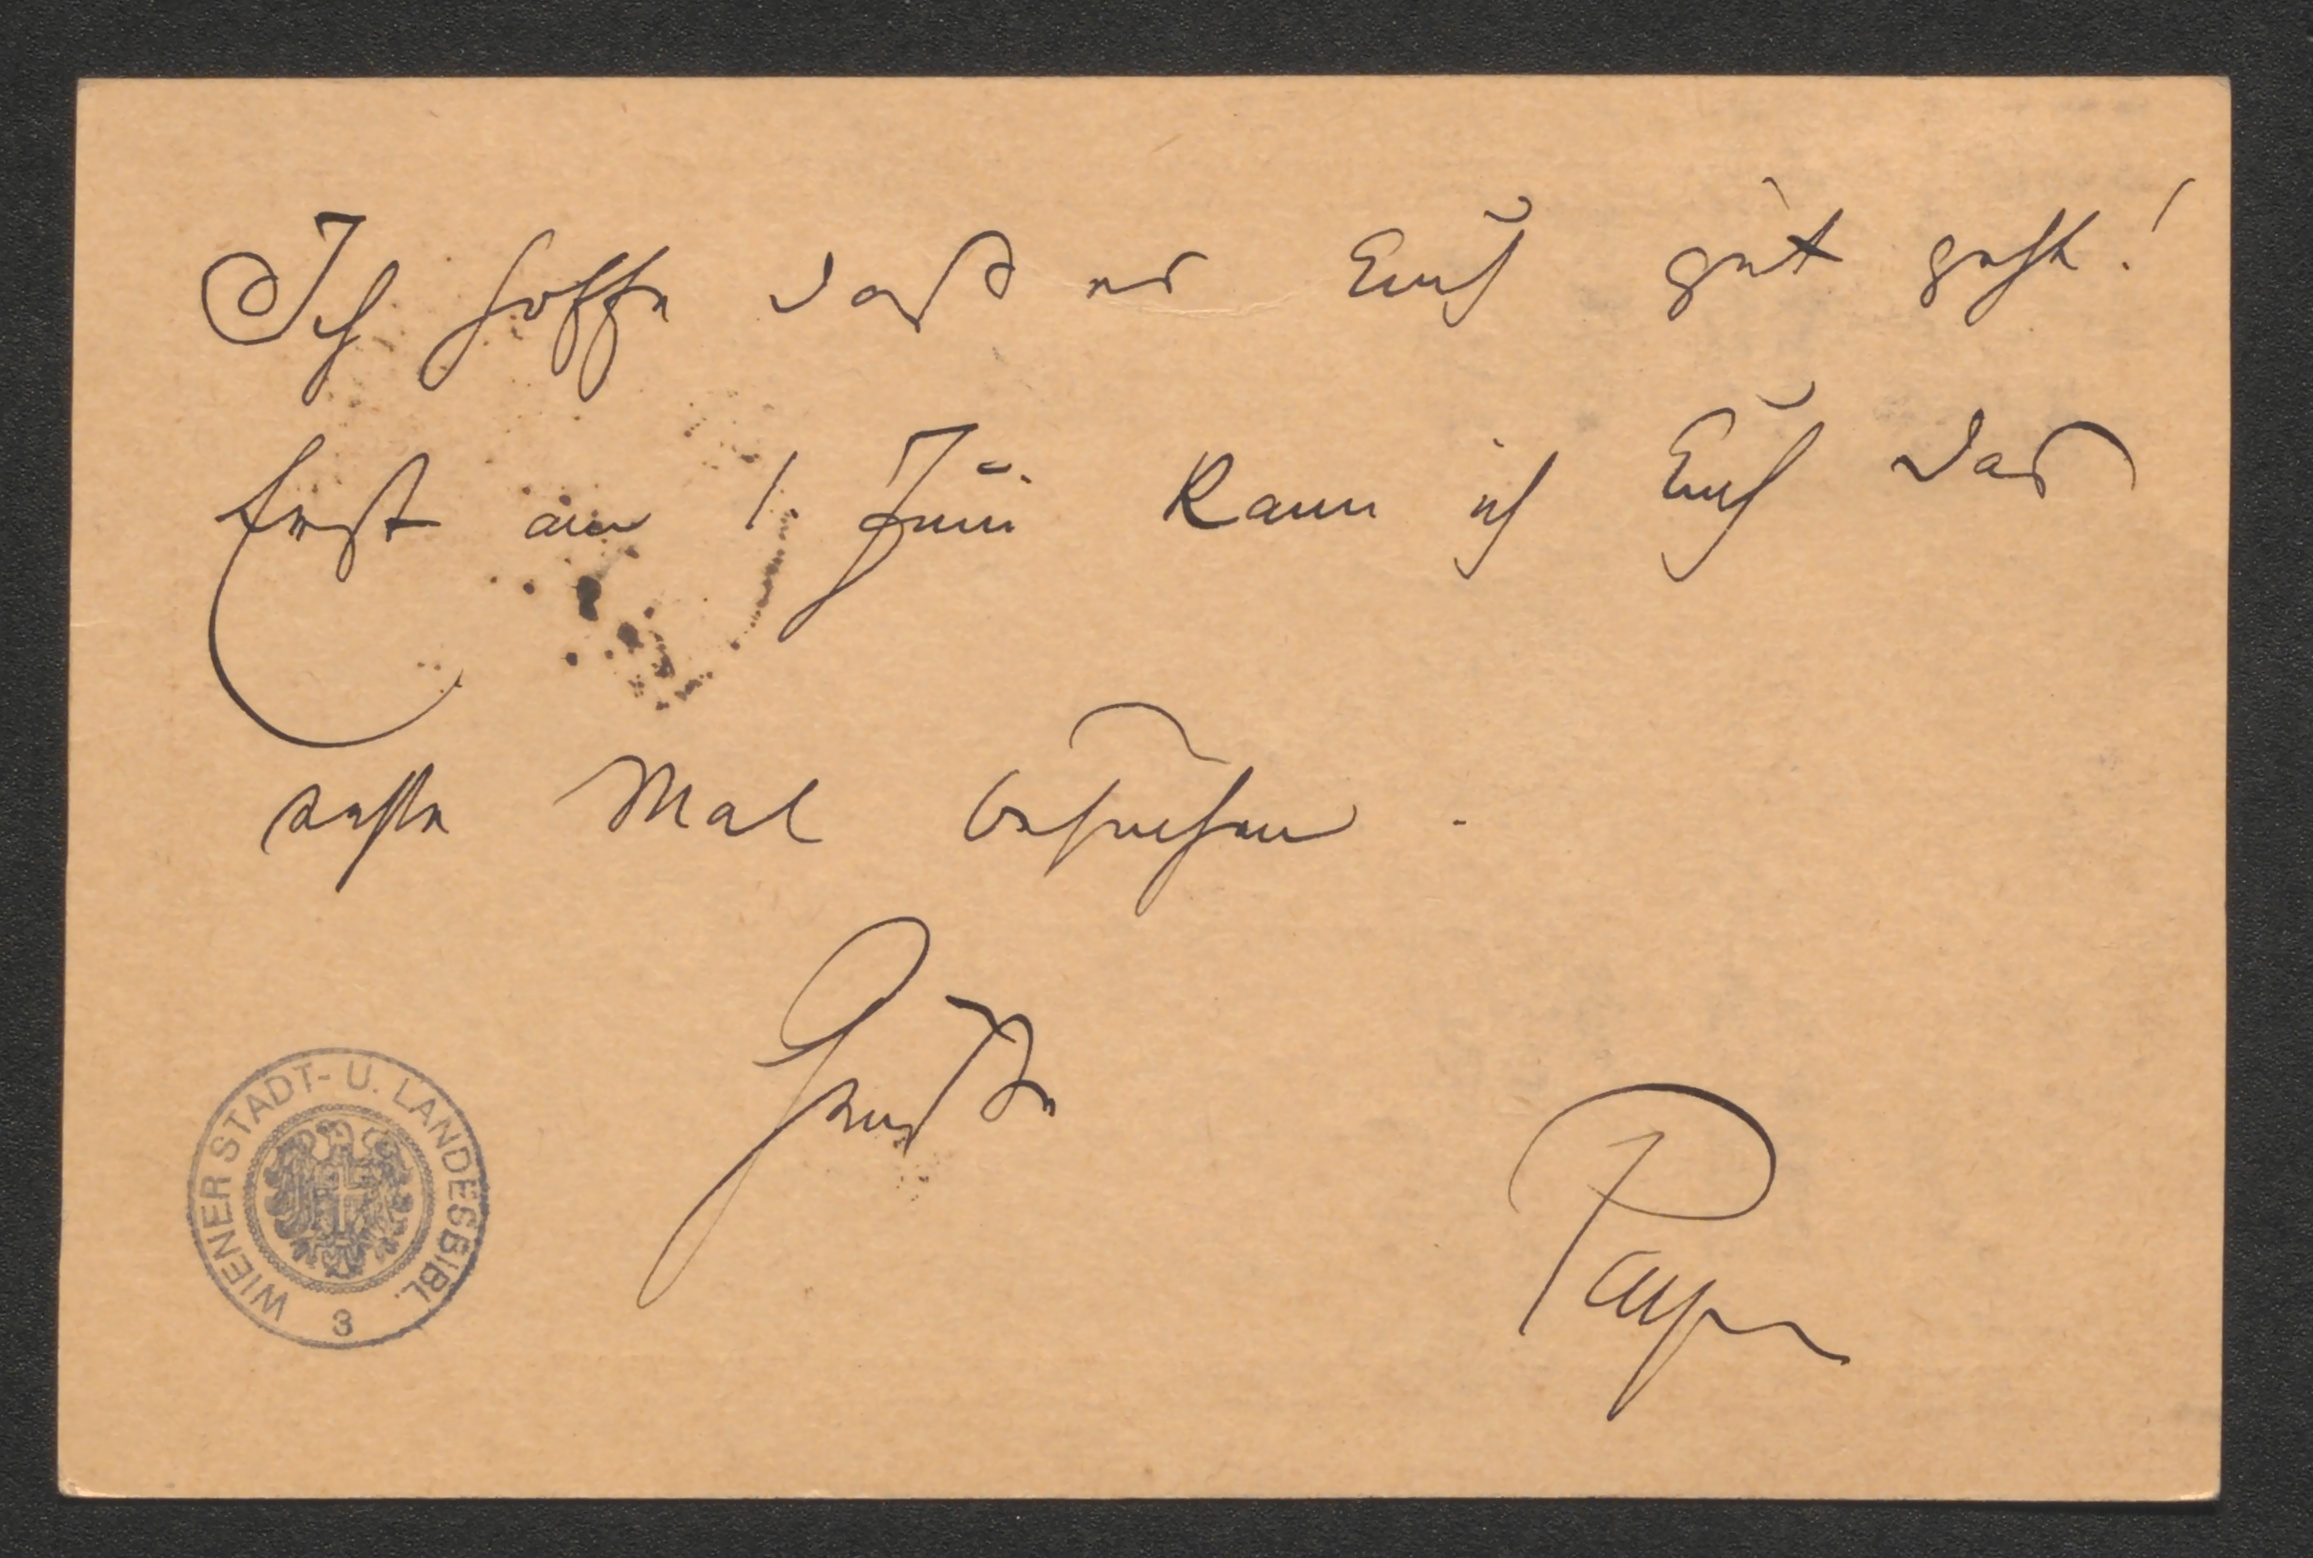 Ich hoffe daß es Euch gut geht!
Erst am 1. Juni kann ich Euch das
erste Mal besuchen.
Grüße
Papa
WIENER STADT- U. LANDESBIBL.
3